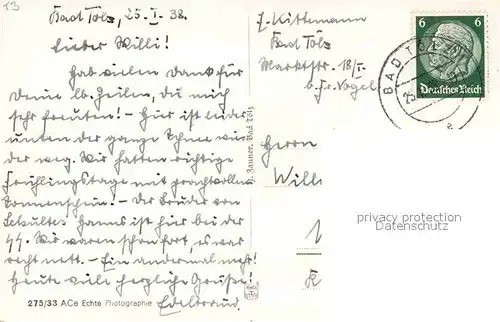 Bad Tölz, 25.I.38.
Lieber Willi!
Hab vielen Dank für
Deine lb. Zeilen, die mich
sehr freuten! – Hier ist leider
unten der ganze Schnee wie-
der weg. Wir hatten richtige
Frühlingstage mit prachtvollem
Sonnenschein! – Der Bruder von
Hanns ist hier bei der
SS. Wir waren schon fort, es war
recht nett. – Ein andermal mehr!
Heute viele herzliche Grüße!
Edeltraud.
275/33 ACe Echte Photographie
Zauner, Bad Tölz
J. Kittemann
Bad Tölz
Marktstr. 18/I.
b. Fr. Vogel
6 6
Deutsches Reich
BAD TÖL
25
Herrn
Will
privacy protection
Datenschutz